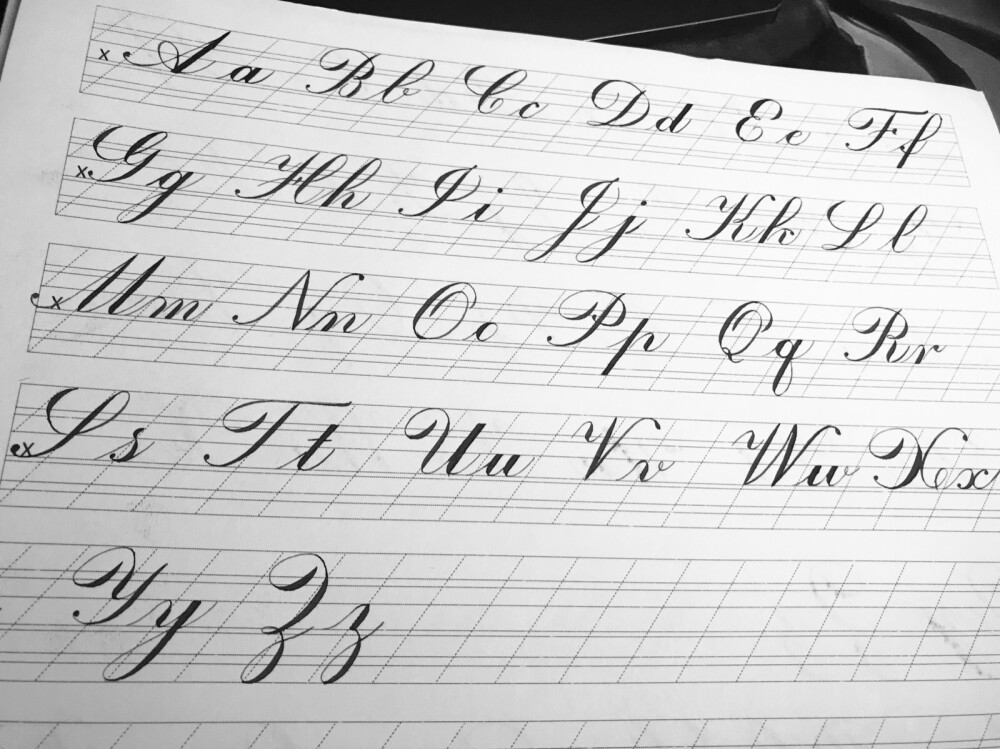 x Aa Bb Cc Dd Ee Ff
x Gg Hh Ii Jj Kk Ll
x Mm Nn Oo Pp Qq Rr
x Ss Tt Uu Vv Ww Xx
Yy Zz